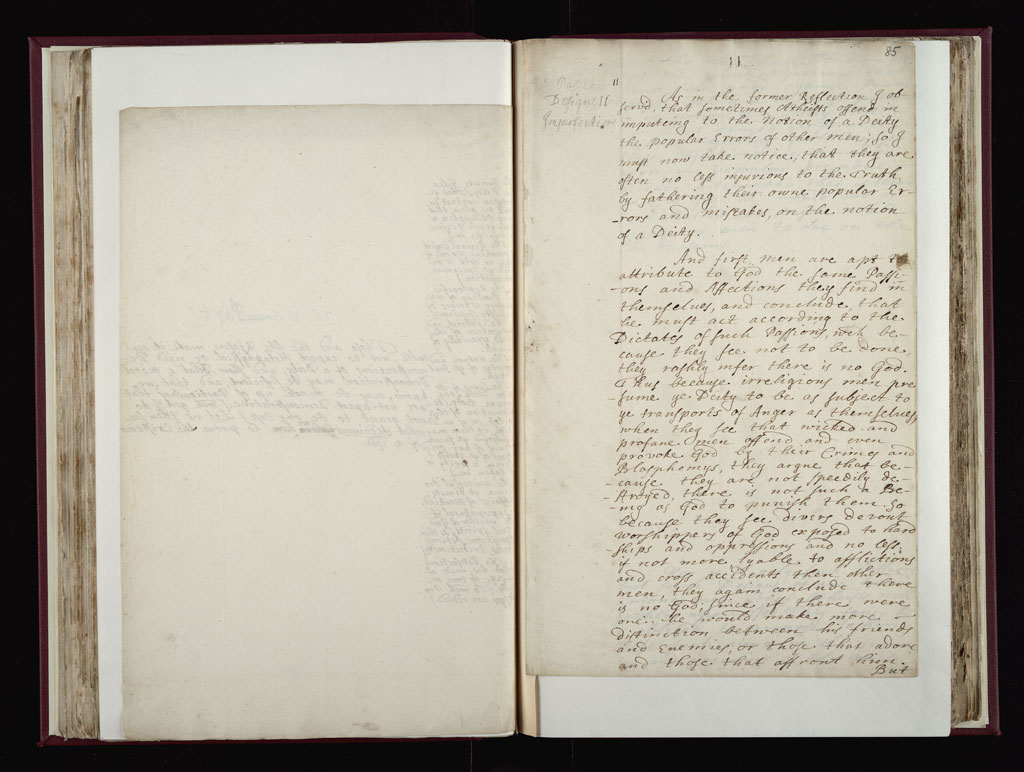 85
11
Designe II
Imperfections
As in the former Reflection I ob-
servd that sometimes Atheists offend in
imputeing to the Notion of a Deity
the popular Errors of other men; so I
must now take notice, that they are
often no less injurious to the Truth,
by fathering their owne popular Er-
-rors and mistakes, on the notion
of a Deity.
And first men are apt to
attribute to God the same Passi-
-ons and Affections they find in
themselves, and conclude that
he must act according to the
Dictates of such Passions, wch be-
cause they see not to be done
they rashly infer there is no God.
Thus because irreligious men pre
-sume ye Deity to be as subject to
ye transports of Anger as themselves,
when they see that wicked and
profane men offend and even
provoke God by their Crimes and
Blasphemys, they argue that be-
-cause they are not speedily de-
-stroyed, there is not such a Be-
-ing as God to punish them. So
because they see divers devout
worshippers of God exposed to hard
ships and oppressions and no less,
if not more lyable to afflictions
and cross accidents then other
men, they again conclude there
is no God, since if there were
one he would make more
distinction between his friends
and Enemies, or those that adore
and those that affront him.
But